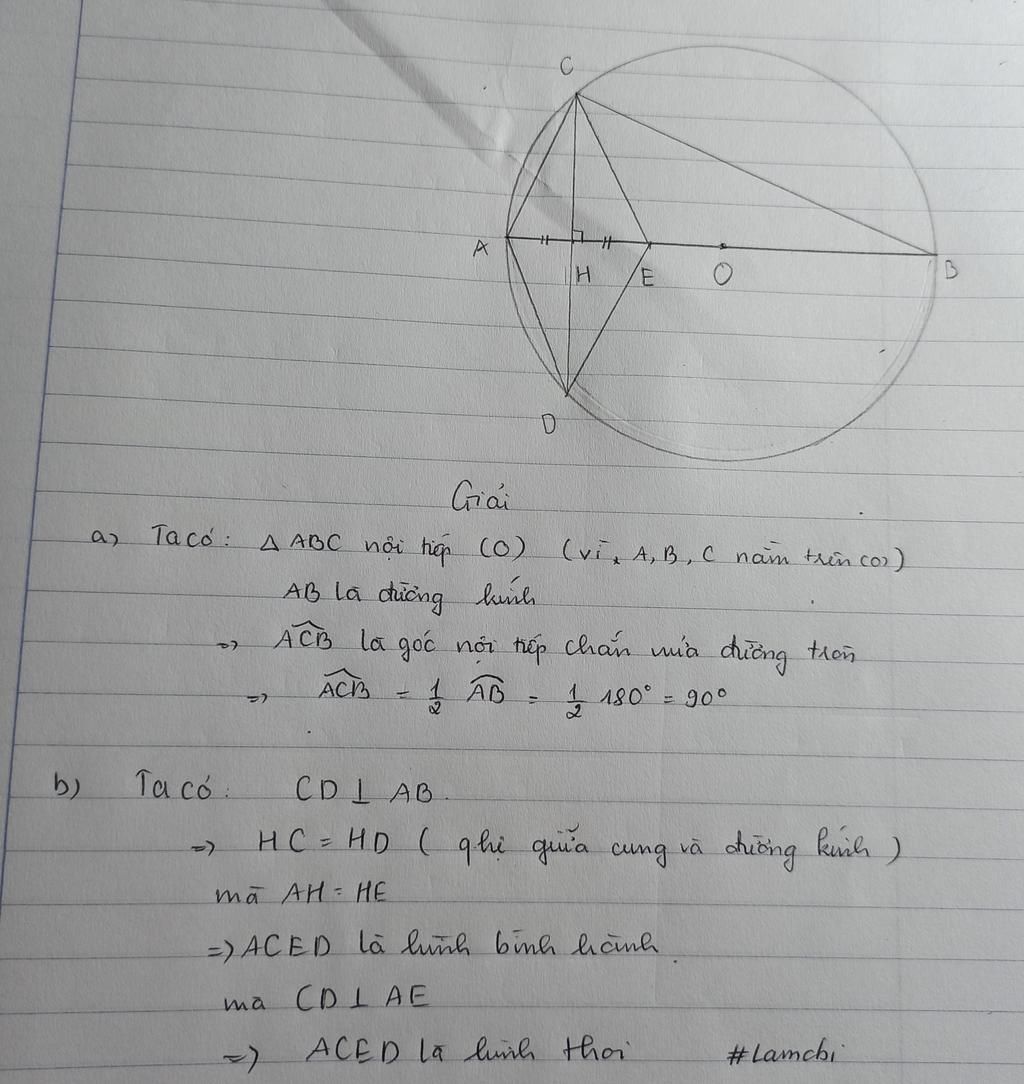 C
A
H
E
O
B
D
Giải
a) Ta có: Δ ABC nội tiếp (O) (vì A, B, C nằm trên (O))
AB là đường kính
=> \widehat{ACB} là góc nội tiếp chắn nửa đường tròn
=> \widehat{ACB} = 1/2 \widehat{AB} = 1/2 180° = 90°
b) Ta có: CD ⊥ AB.
=> HC = HD ( qhệ giữa cung và đường kính )
mà AH = HE
=> ACED là hình bình hành.
mà CD ⊥ AE
=> ACED là hình thoi #Lamchi